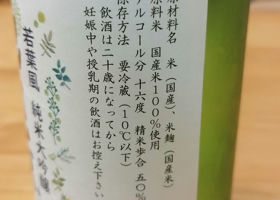 原材料名　米（国産）、米麹（国産米）
原料米　国産米１００％使用
アルコール分　十六度　精米歩合　五〇％
保存方法　要冷蔵（10℃以下）
飲酒は二十歳になってから
妊娠中や授乳期の飲酒はお控え下さい
若葉風　純米大吟醸